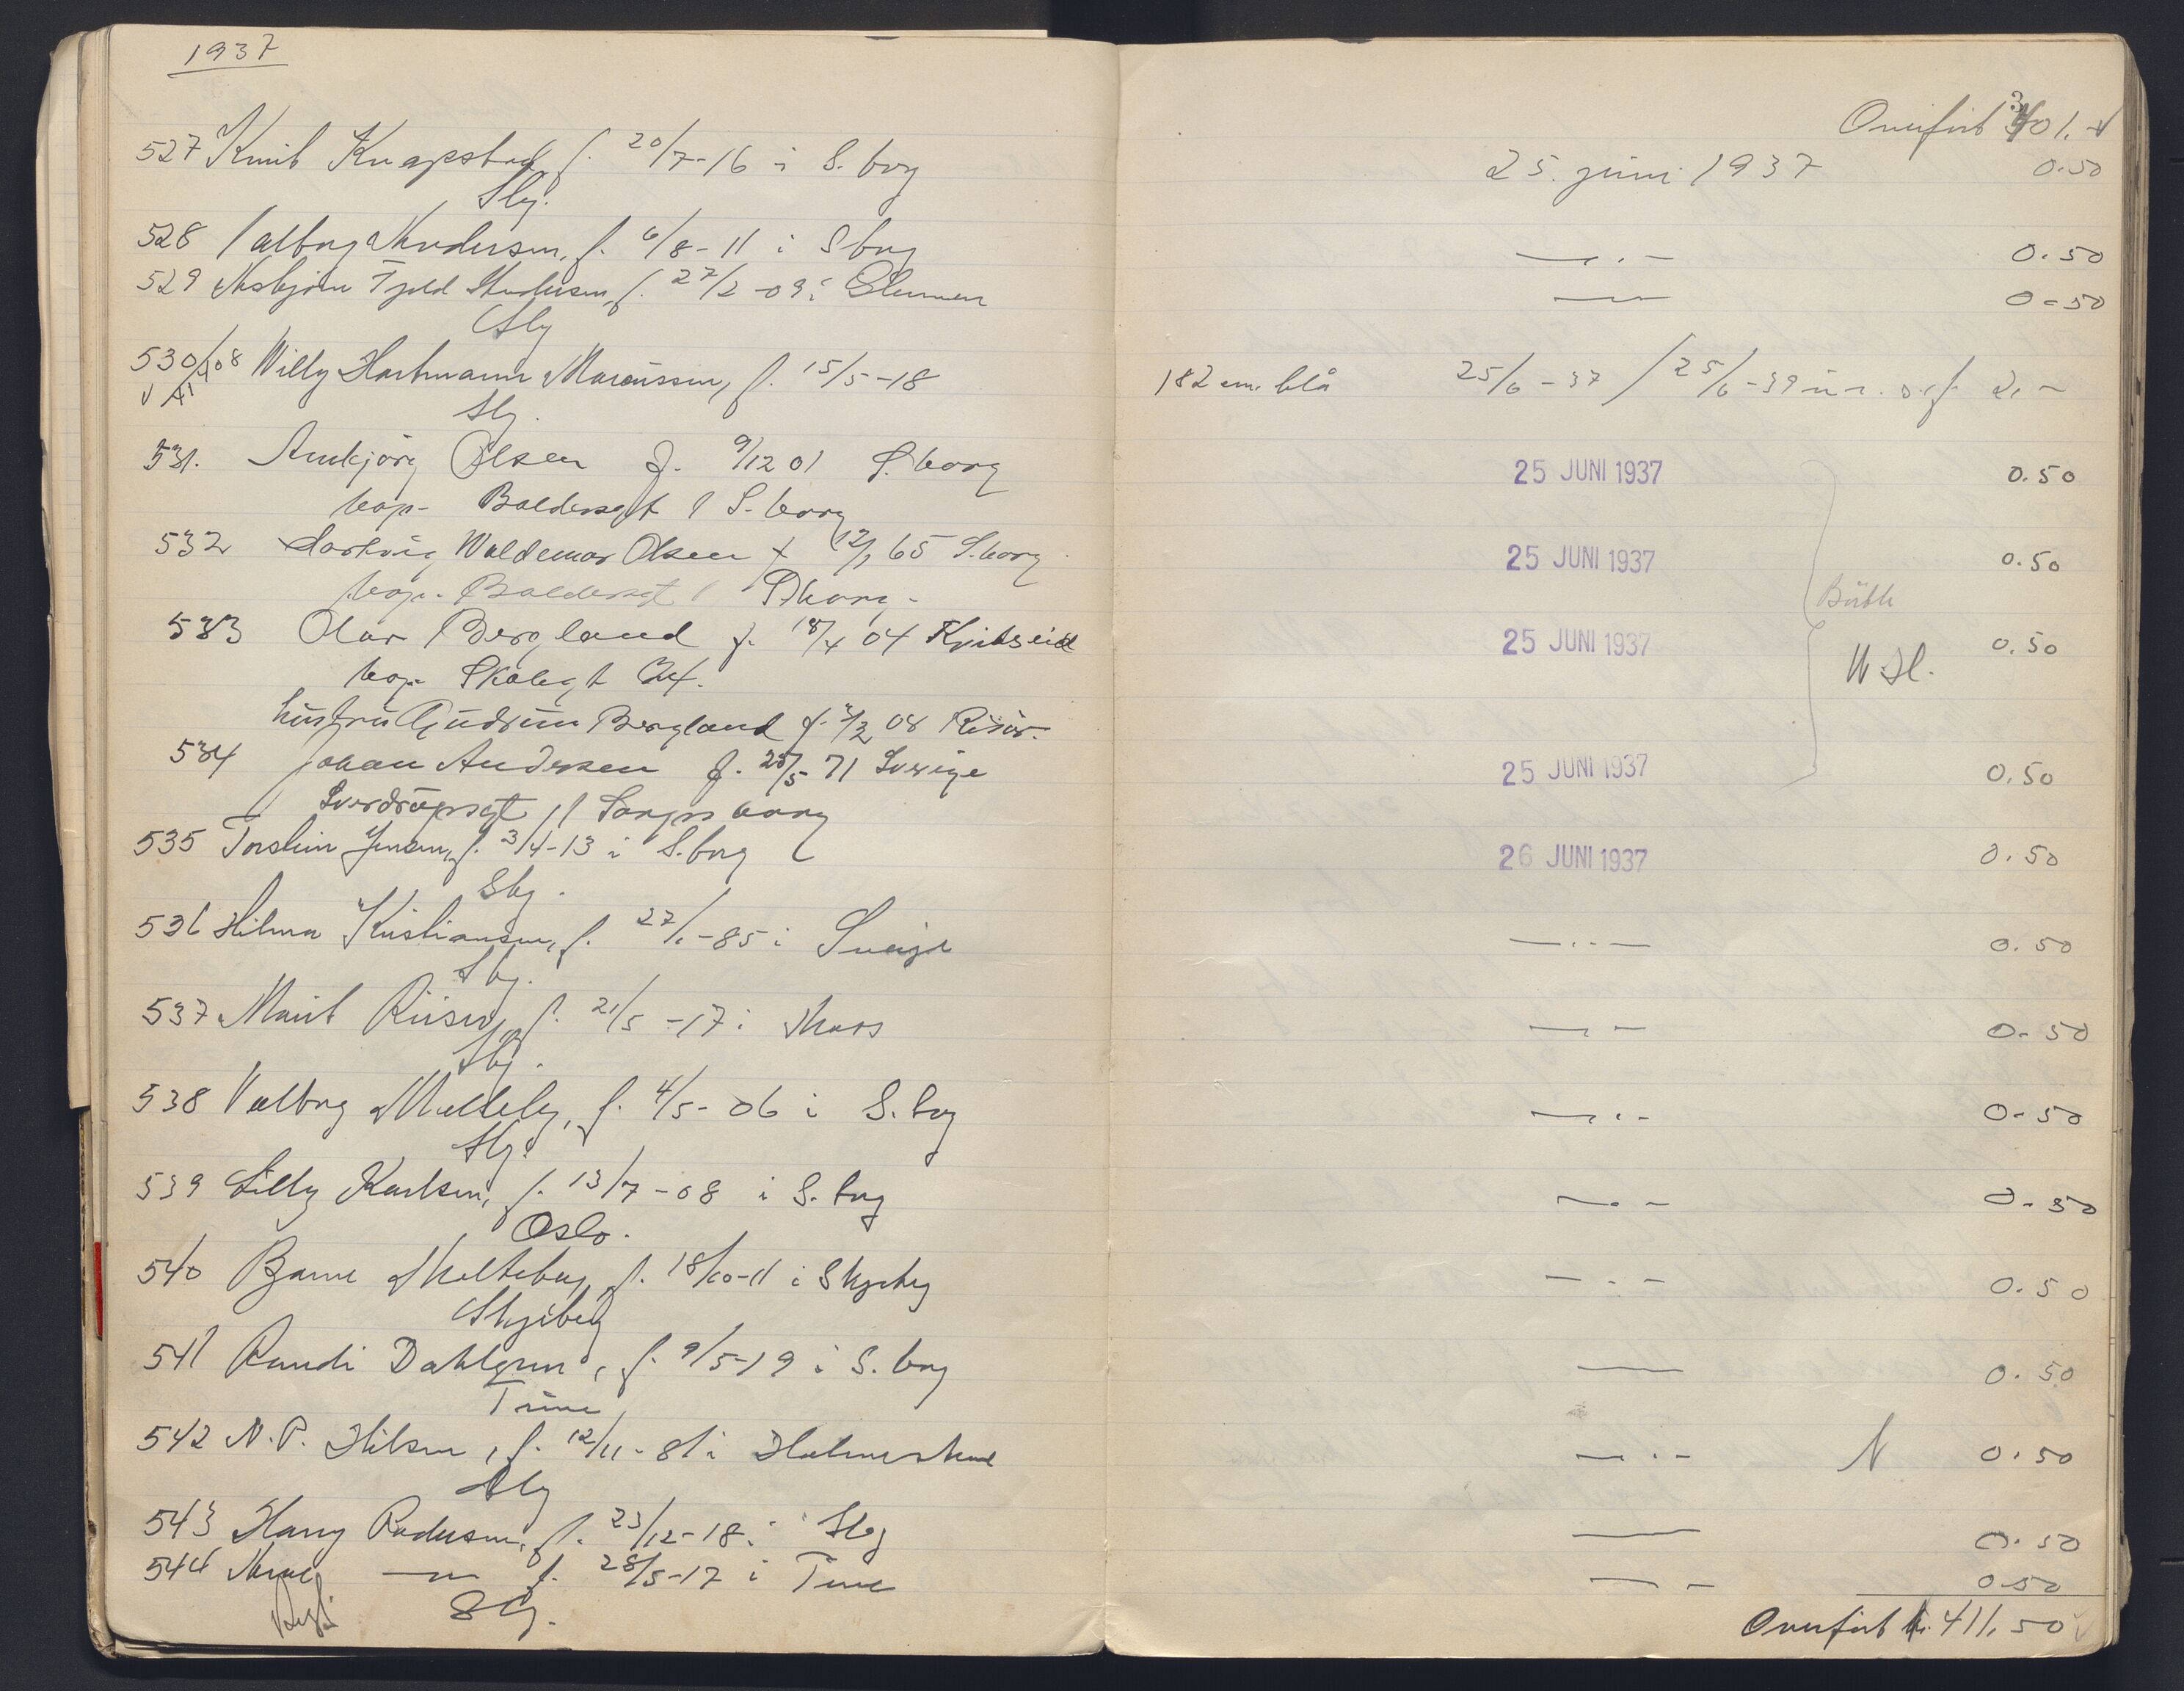 1937
Overført 401.-
527 Knut Knapstad, f. 20/7-16 i S.borg 25. juni 1937 0.50
Sbg.
528 Valborg Andersen, f. 6/8-11 i Sborg —.— 0.50
529 Asbjørn Fjeld Andersen, f. 27/2-09 i Glemmen — 0-50
Sbg
530/ Willy Hartmann Marcussen, f. 15/5-18 182 cm. blå 25/6-37 / 25/6-39 2,-
Sbg.
531. Olsen f. 9/12 01 S.borg 25 JUNI 1937 0.50
bop. Baldersgt 1 S.borg
532 Hartvig Waldemar Olsen f 12/1 65 S.borg 25 JUNI 1937 0.50
bop. Baldersgt 1 S.borg.
533 Olav Bergland f. 18/4 04 Kviteseid 25 JUNI 1937 0.50
bop. Skolegt
hustru Gudrun Bergland f. 3/2 08 Risør.
534 Johan Andersen f. 25/5-71 Sverige 25 JUNI 1937 0.50
Sverdrupsgt 11 Sarpsborg
535 Torstein Jensen, f. 3/4-13 i S.borg 26 JUNI 1937 0.50
Sbg.
536 Hilma Kristiansen, f. 27/1-85 i Sverige —..— 0.50
Sbg.
537 Marit Riiser, f. 21/5-17 i Moss — — 0-50
Sbg.
538 Valborg f. 4/5-06 i S.borg —.- 0-50
Sbg.
539 Lilly Karlsen, f. 13/7-08 i S.borg —.- 0-50
Oslo.
540 Bjarne f. 18/10-11 i Skjeberg —.- 0.50
Skjeberg
541 Randi Dahlgren, f. 9/5-19 i S.borg — 0.50
Tune
542 N.P. Nilsen, f. 12/11-81 i Holmestrand —.- N 0.50
Sbg
543 Harry Pedersen, f. 23/12-18 i Sbg — 0.50
544 —"— f. 28/5-17 i Tune — - 0.50
Sbg.
Overført kr. 411,50